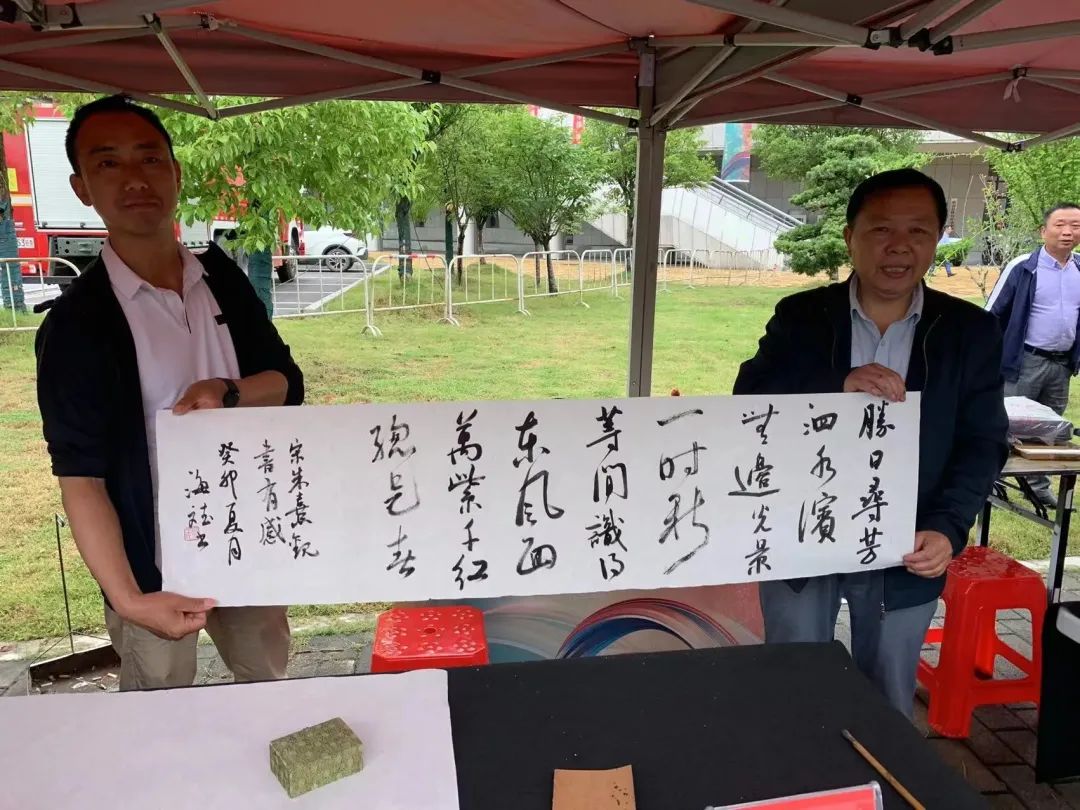 勝日尋芳
泗水濱
無邊光景
一时新
等間識得
东风面
萬紫千红
總是春
宋朱熹觀
書有感
癸卯夏月
海